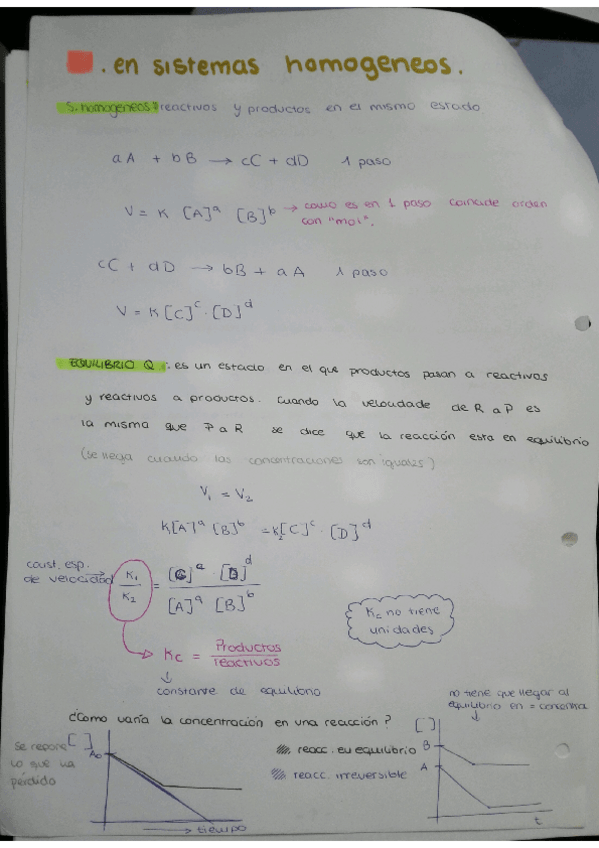 . en sistemas homogeneos.
S. homogeneos: reactivos y productos en el mismo estado
aA + bB → cC + dD 1 paso
V = K [A]ᵃ [B]ᵇ → como es en 1 paso coincide orden
con "mol".
cC + dD → bB + aA 1 paso
V = K [C]ᶜ · [D]ᵈ
EQUILIBRIO Q : es un estado en el que productos pasan a reactivos
y reactivos a productos. Cuando la velocidade de R a P es
la misma que P a R se dice que la reacción esta en equilibrio
(se llega cuando las concentraciones son iguales)
V₁ = V₂
K[A]ᵃ [B]ᵇ = K₂[C]ᶜ · [D]ᵈ
const. esp.
de velocidad → K₁/K₂ = [C]ᵃ · [D]ᵈ / [A]ᵃ [B]ᵇ
Kc no tiene
unidades
Kc = Productos/reactivos
↓
constante de equilibrio
no tiene que llegar al
equilibrio en = concentra
¿Como varía la concentración en una reacción?
[ ]
Se repone
lo que ha
perdido
[ ]
A₀
tiempo
reacc. en equilibrio
reacc. irreversible
B
A
t